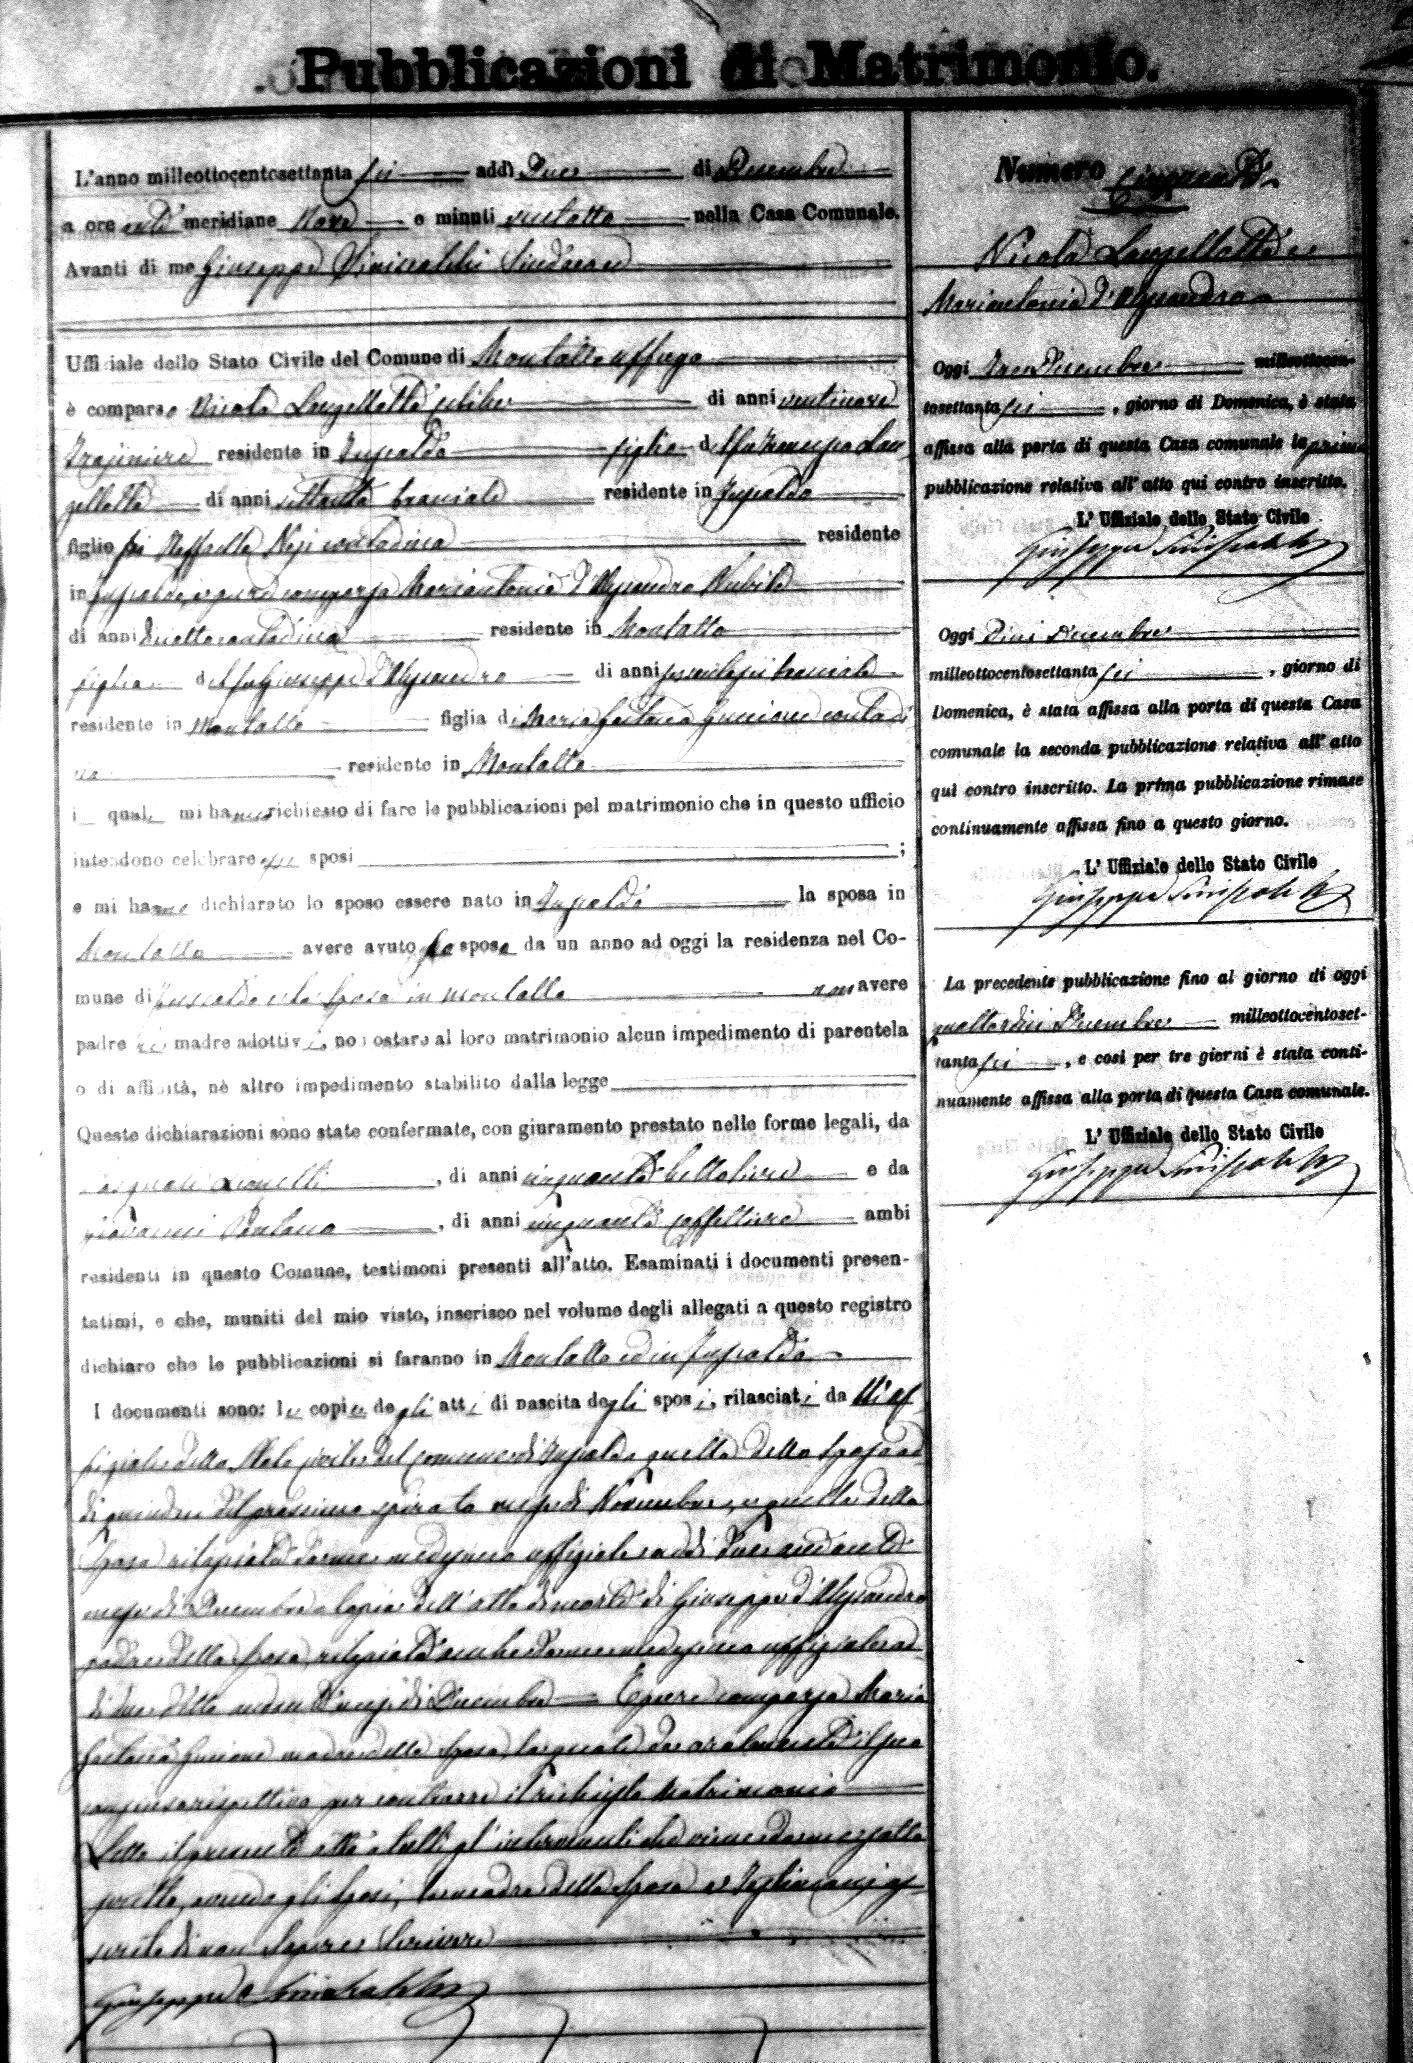 Pubblicazioni di Matrimonio.
L'anno milleottocentosettanta sei addì Due di Decembre
a ore anti meridiane Nove e minuti ventotto nella Casa Comunale.
Avanti di me Giuseppe Siniscalchi Sindaco
Ufficiale dello Stato Civile del Comune di Montalto uffugo
è comparso Nicola Lanzellotta celibe di anni ventinove
residente in Fuscaldo figlio del fu Francesco Lan
zellotta di anni settanta bracciale residente in Fuscaldo
figlio di Raffaella contadina residente
in Fuscaldo, e pure comparsa Mariantonia d'Alessandro Nubile
di anni diciotto contadina residente in Montalto
figlia del fu Giuseppe d'Alessandro di anni sessantasei bracciale
residente in Montalto figlia di Maria Gaetana Guccione contadi
na residente in Montalto
i quali mi hanno richiesto di fare le pubblicazioni pel matrimonio che in questo ufficio
intendono celebrare essi sposi ;
e mi hanno dichiarato lo sposo essere nato in Fuscaldo la sposa in
Montalto avere avuto lo sposo da un anno ad oggi la residenza nel Co-
mune di Fuscaldo e la sposa in Montalto non avere
padre nè madre adottivi, non ostare al loro matrimonio alcun impedimento di parentela
o di affinità, nè altro impedimento stabilito dalla legge
Queste dichiarazioni sono state confermate, con giuramento prestato nelle forme legali, da
Pasquale , di anni cinquanta bettoliere e da
Giovanni Pantano , di anni cinquanta caffettiere ambi
residenti in questo Comune, testimoni presenti all'atto. Esaminati i documenti presen-
tatimi, e che, muniti del mio visto, inserisco nel volume degli allegati a questo registro
dichiaro che le pubblicazioni si faranno in Montalto ed in Fuscaldo
I documenti sono: le copie degli atti di nascita degli sposi, rilasciati da Uf
fiziale dello Stato civile del comune di Fuscaldo quella dello sposo ad
di quindici del prossimo spirato mese di Novembre, e quella della
sposa rilasciata da me medesimo uffiziale addì due andante
mese di Decembre copia dell'atto di morte di Giuseppe d'Alessandro
padre della sposa, rilasciata anche da me medesimo uffiziale ad
dì due detto andante mese di Decembre E pure comparsa Maria
Gaetana Guccione madre della sposa, la quale da oralmente il suo
consenso rispettivo per contrarre il richiesto matrimonio
Letto il presente atto a tutti gl'intervenuti che viene da me
scritto, avendo gli sposi, la madre della sposa e testimoni as
serito di non sapere scrivere
Giuseppe Siniscalchi
Numero Cinquanta
Nicola Lanzellotta e
Mariantonia d'Alessandro
Oggi tre Decembre milleottocen-
tosettanta sei , giorno di Domenica, è stata
affissa alla porta di questa Casa comunale la prima
pubblicazione relativa all'atto qui contro inscritto.
L'Uffiziale dello Stato Civile
Giuseppe Siniscalchi
Oggi Dieci Decembre
milleottocentosettanta sei , giorno di
Domenica, è stata affissa alla porta di questa Casa
comunale la seconda pubblicazione relativa all'atto
qui contro inscritto. La prima pubblicazione rimase
continuamente affissa fino a questo giorno.
L'Uffiziale dello Stato Civile
Giuseppe Siniscalchi
La precedente pubblicazione fino al giorno di oggi
quattordici Decembre milleottocentoset-
tanta sei , e così per tre giorni è stata conti-
nuamente affissa alla porta di questa Casa comunale.
L'Uffiziale dello Stato Civile
Giuseppe Siniscalchi